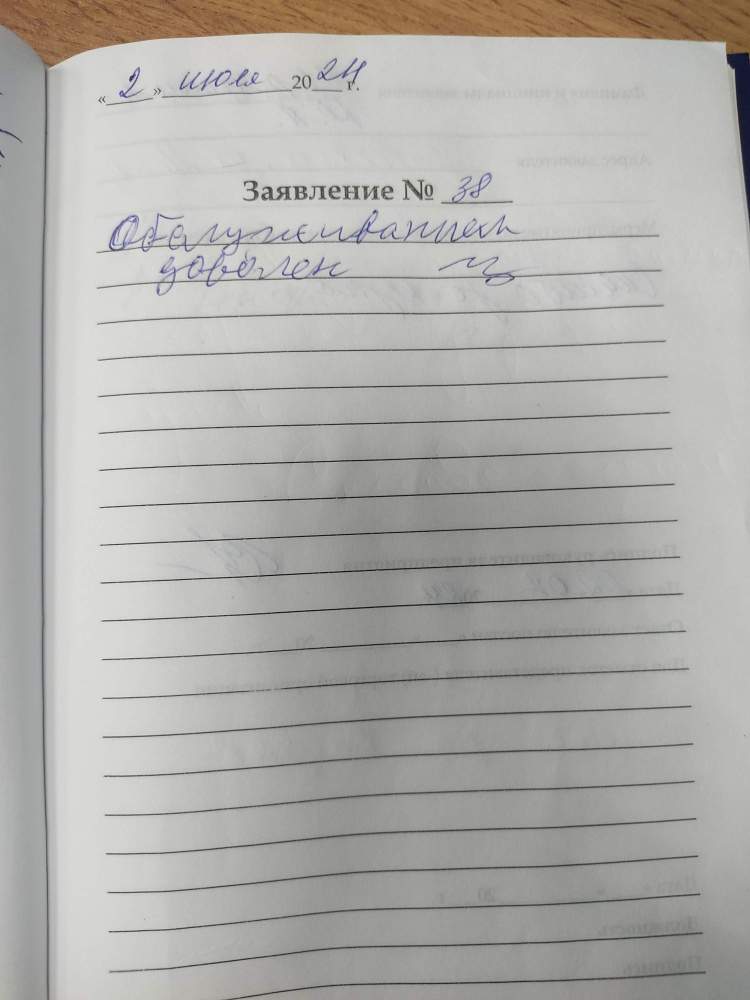 « 2 » июля 2024 г.
Заявление № 38
Обслуживанием
доволен